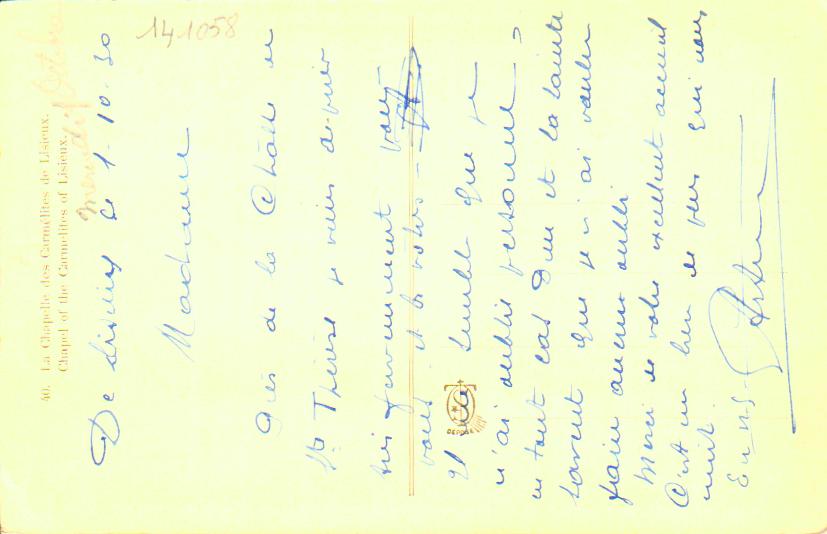 141058
40. La Chapelle des Carmélites de Lisieux.
Chapel of the Carmelites of Lisieux.
mercredi 1 Octobre
De Lisieux le 1-10-30
Madame
Près de la Châsse de
Ste Thérèse je viens de prier
très fervemment pour
vous et les vôtres -
Il me semble que je
n'ai oublié personne -
en tout cas Dieu et la Sainte
savent que je n'ai voulu
faire aucun oubli
Merci de votre excellent accueil
C'est un lien de plus qui nous
unit.
En N.S.
DÉPOSÉ